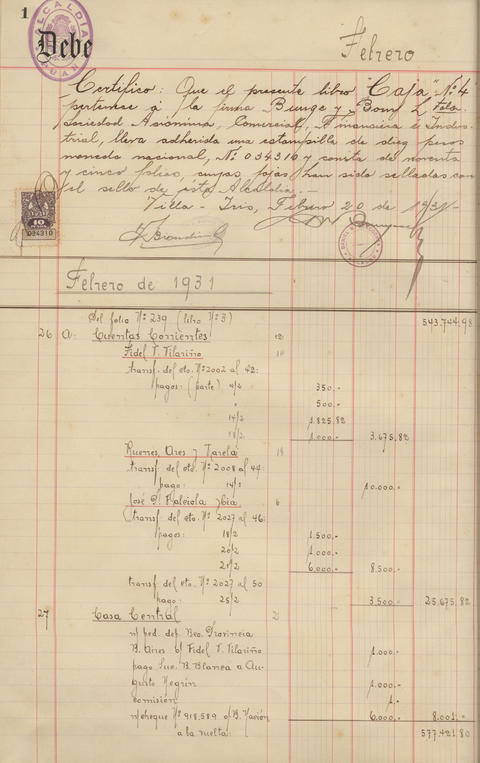 1
ALCALDIA
Debe
Febrero
Certifico: Que el presente libro "Caja" Nº 4
pertenece á la firma Bunge y Born L tda.
Sociedad Anónima, Comercial, Financiera é Indus-
trial, lleva adherida una estampilla de diez pesos
moneda nacional, Nº 034310 y consta de noventa
y cinco folios, cuyas fojas han sido selladas con
el sello de ésta Alcaldia.-
Villa - Iris, Febrero 20 de 1931-
10
034310
Febrero de 1931
Del folio Nº 239 (libro Nº 3) 543.744.98
26 A: Cuentas Corrientes 12
Fidel V. Vilariño 10
transf. del cto. Nº 2002 al 42:
pagos: (parte) 9/2 350.-
" 500.-
14/2 1.825.82
18/2 1.000.- 3.675.82
Buenes, Ares y Varela 18
transf. del cto. Nº 2008 al 44:
pago: 14/2 10.000.-
José P. Cia 6
transf. del cto. Nº 2027 al 46:
pagos: 18/2 1.500.-
20/2 1.000.-
21/2 6.000.- 8.500.-
transf. del cto. Nº 2027 al 50
pago: 25/2 3.500.- 25.675.82
27 Casa Central 2
n/ped. dep. Bco. Provincia
B. Aires o/ Fidel V. Vilariño 1.000.-
pago Suc. B. Blanca a Au-
gusto Negrin 1.000.-
comisión 1.-
n/cheque Nº 918.589 c/B. Nación 6.000.- 8.001.-
a la vuelta: 577.421.80